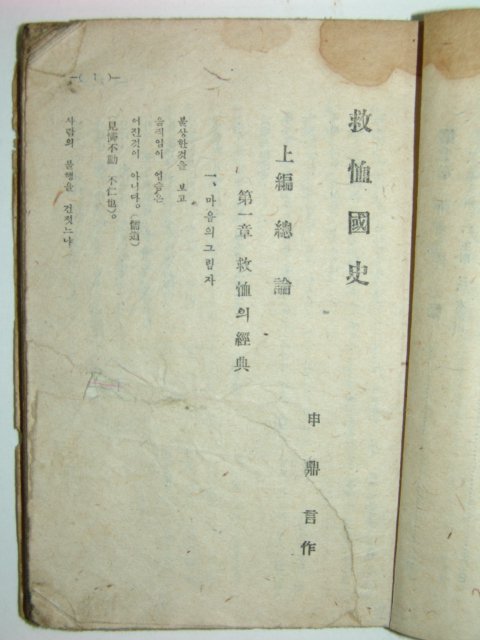 救恤國史
申鼎言作
上編 總論
第一章 救恤의 經典
一、마음의 그림자
불상한것을 보고
음즉임이 업슴은
어진것이 아니다。(儒道)
(見慟不動 不仁也)。
사람의 불행을 건젓느냐
—( 1 )—